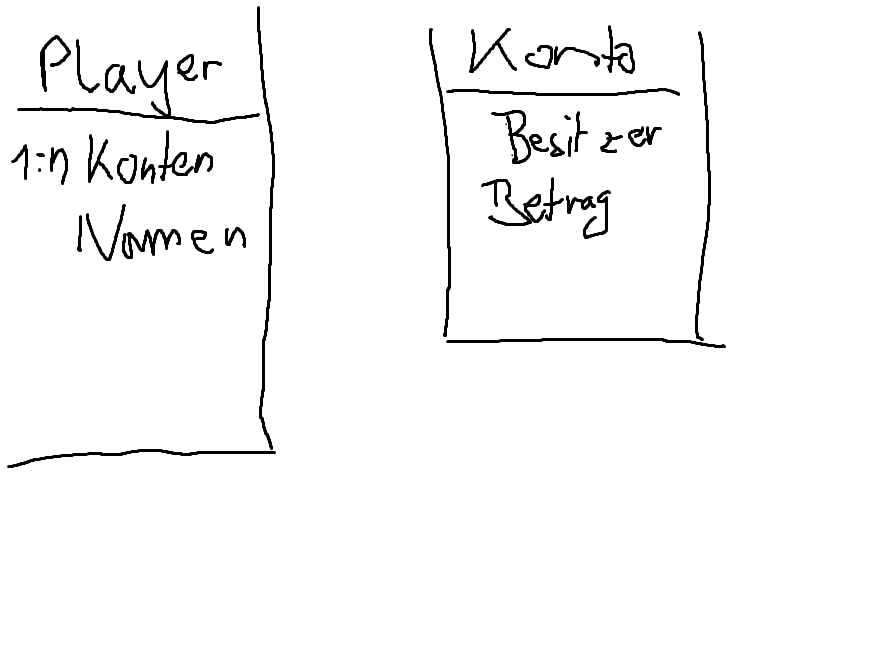 Player
1:n Konten
Namen
Konto
Besitzer
Betrag